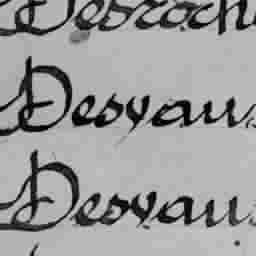 Desroch
Desvaus
Desvaus